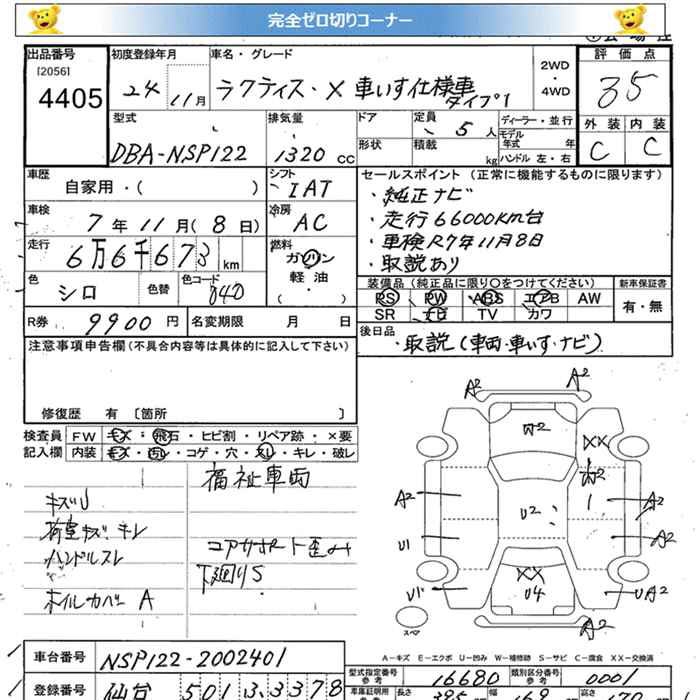 完全ゼロ切りコーナー
出品番号 [2056] 4405
初度登録年月 24 11月
車名・グレード ラクティス・X 車いす仕様車 タイプ1
2WD・4WD
評価点 35
外装 C 内装 C
型式 DBA-NSP122
排気量 1320 CC
ドア 形状
定員 5人 積載 kg
ディーラー・並行
モデル年式 年
ハンドル 左・右
車歴 自家用・( )
シフト IAT
車検 7年11月(8日)
冷房 AC
走行 6万6千673 km
燃料 ガソリン 軽油 ( )
色 シロ 色替 色コード 040
R券 9900円 名変期限 月 日
セールスポイント (正常に機能するものに限ります)
・純正ナビ
・走行66000km台
・車検R7年11月8日
・取説あり
装備品 (純正品に限り○をつけてください) 新車保証書
PS PW ABS エアB AW 有・無
SR ナビ TV カワ
後日品 ・取説(車両・車いす・ナビ)
注意事項申告欄 (不具合内容等は具体的に記入して下さい)
修復歴 有 [箇所 ]
検査員 FW キズ・飛石・ヒビ割・リペア跡・×要
記入欄 内装 キズ・汚レ・コゲ・穴・スレ・キレ・破レ
福祉車両
キズU
荷室キズ・キレ
ハンドルスレ
コアサポート歪み
下廻りS
ホイルカバー A
A2 A2
W2
XX
W2
A2 U2 1 A2
U1 A2
XX
U1 U4 UA2
スペア
A2
A-キズ E-エクボ U-凹み W-補修跡 S-サビ C-腐食 XX-交換済
車台番号 NSP122-2002401
型式指定番号 参考 16680 類別区分番号 参考 0001
登録番号 仙台 501 ユ 3378
車庫証明用 参考 長さ 395 幅 169 高さ